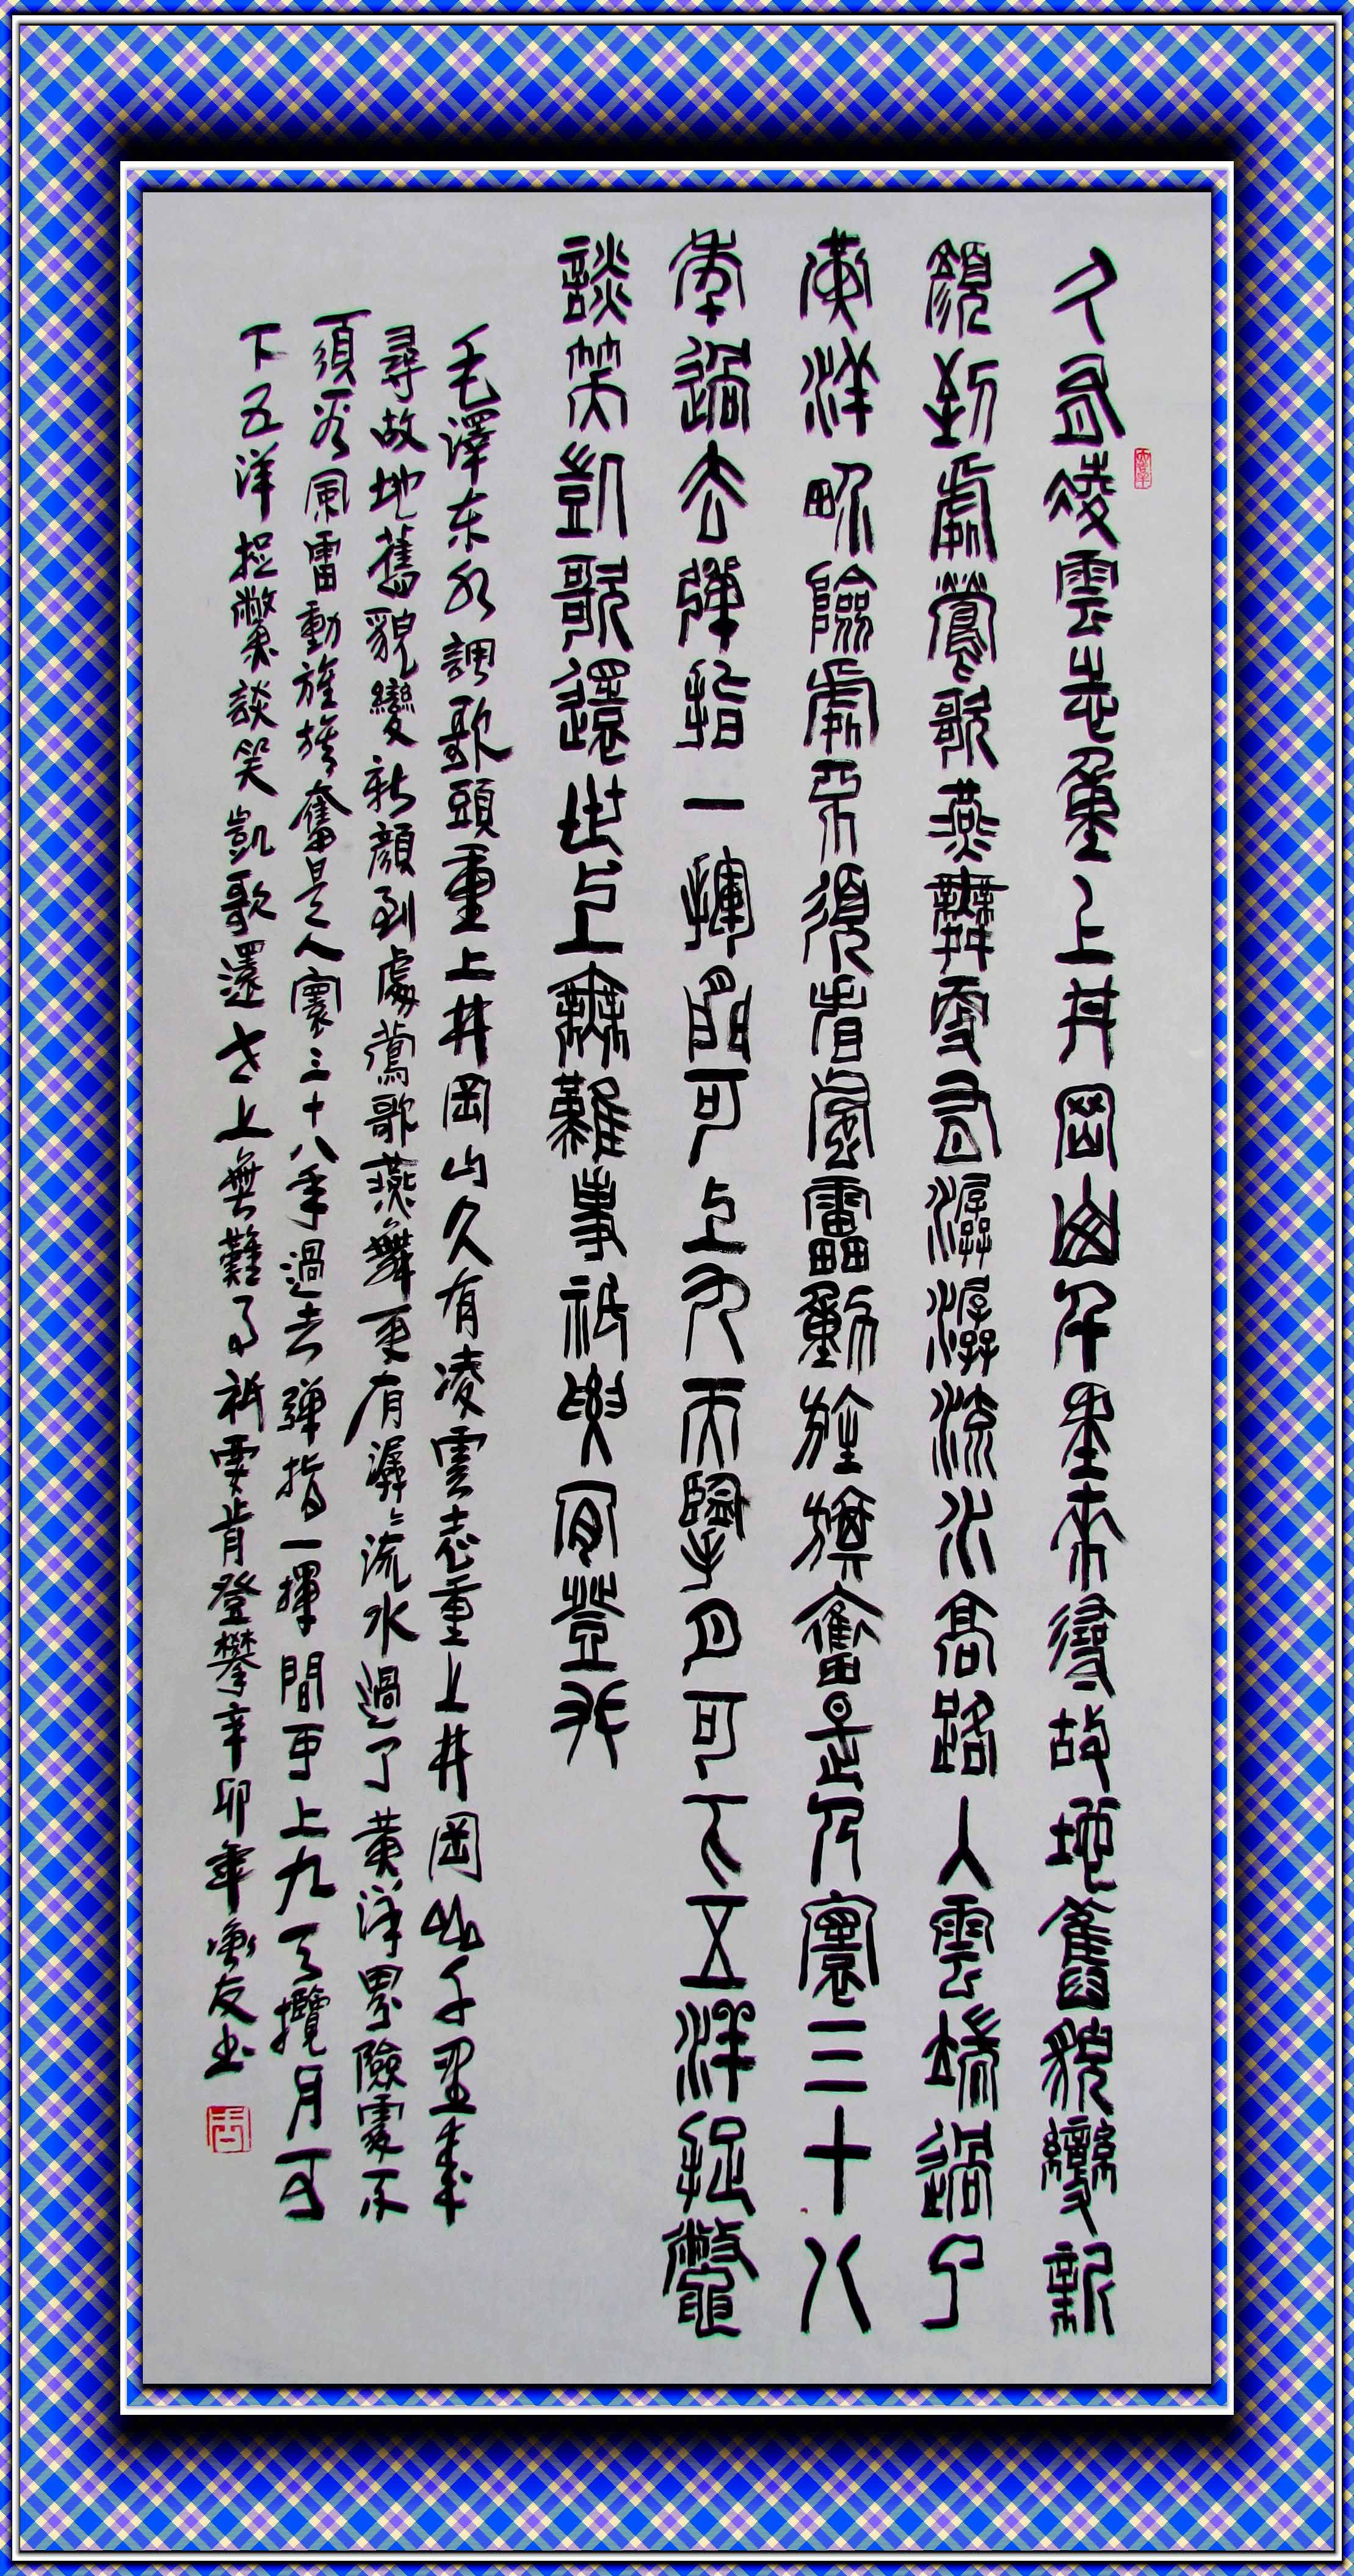 久有凌雲志重上井岡山千里來尋故地舊貌變新
顏到處鶯歌燕舞更有潺潺流水高路入雲端過了
黃洋界險處不須看風雷動旌旗奮是人寰三十八
年過去彈指一揮間可上九天攬月可下五洋捉鱉
談笑凱歌還世上無難事祇要肯登攀
毛澤东水調歌頭重上井岡山久有凌雲志重上井岡山千里來
尋故地舊貌變新顏到處鶯歌燕舞更有潺〻流水過了黃洋界險處不
須看風雷動旌旗奮是人寰三十八年過去彈指一揮間可上九天攬月可
下五洋捉鱉談笑凱歌還世上無難事祇要肯登攀辛卯年友书